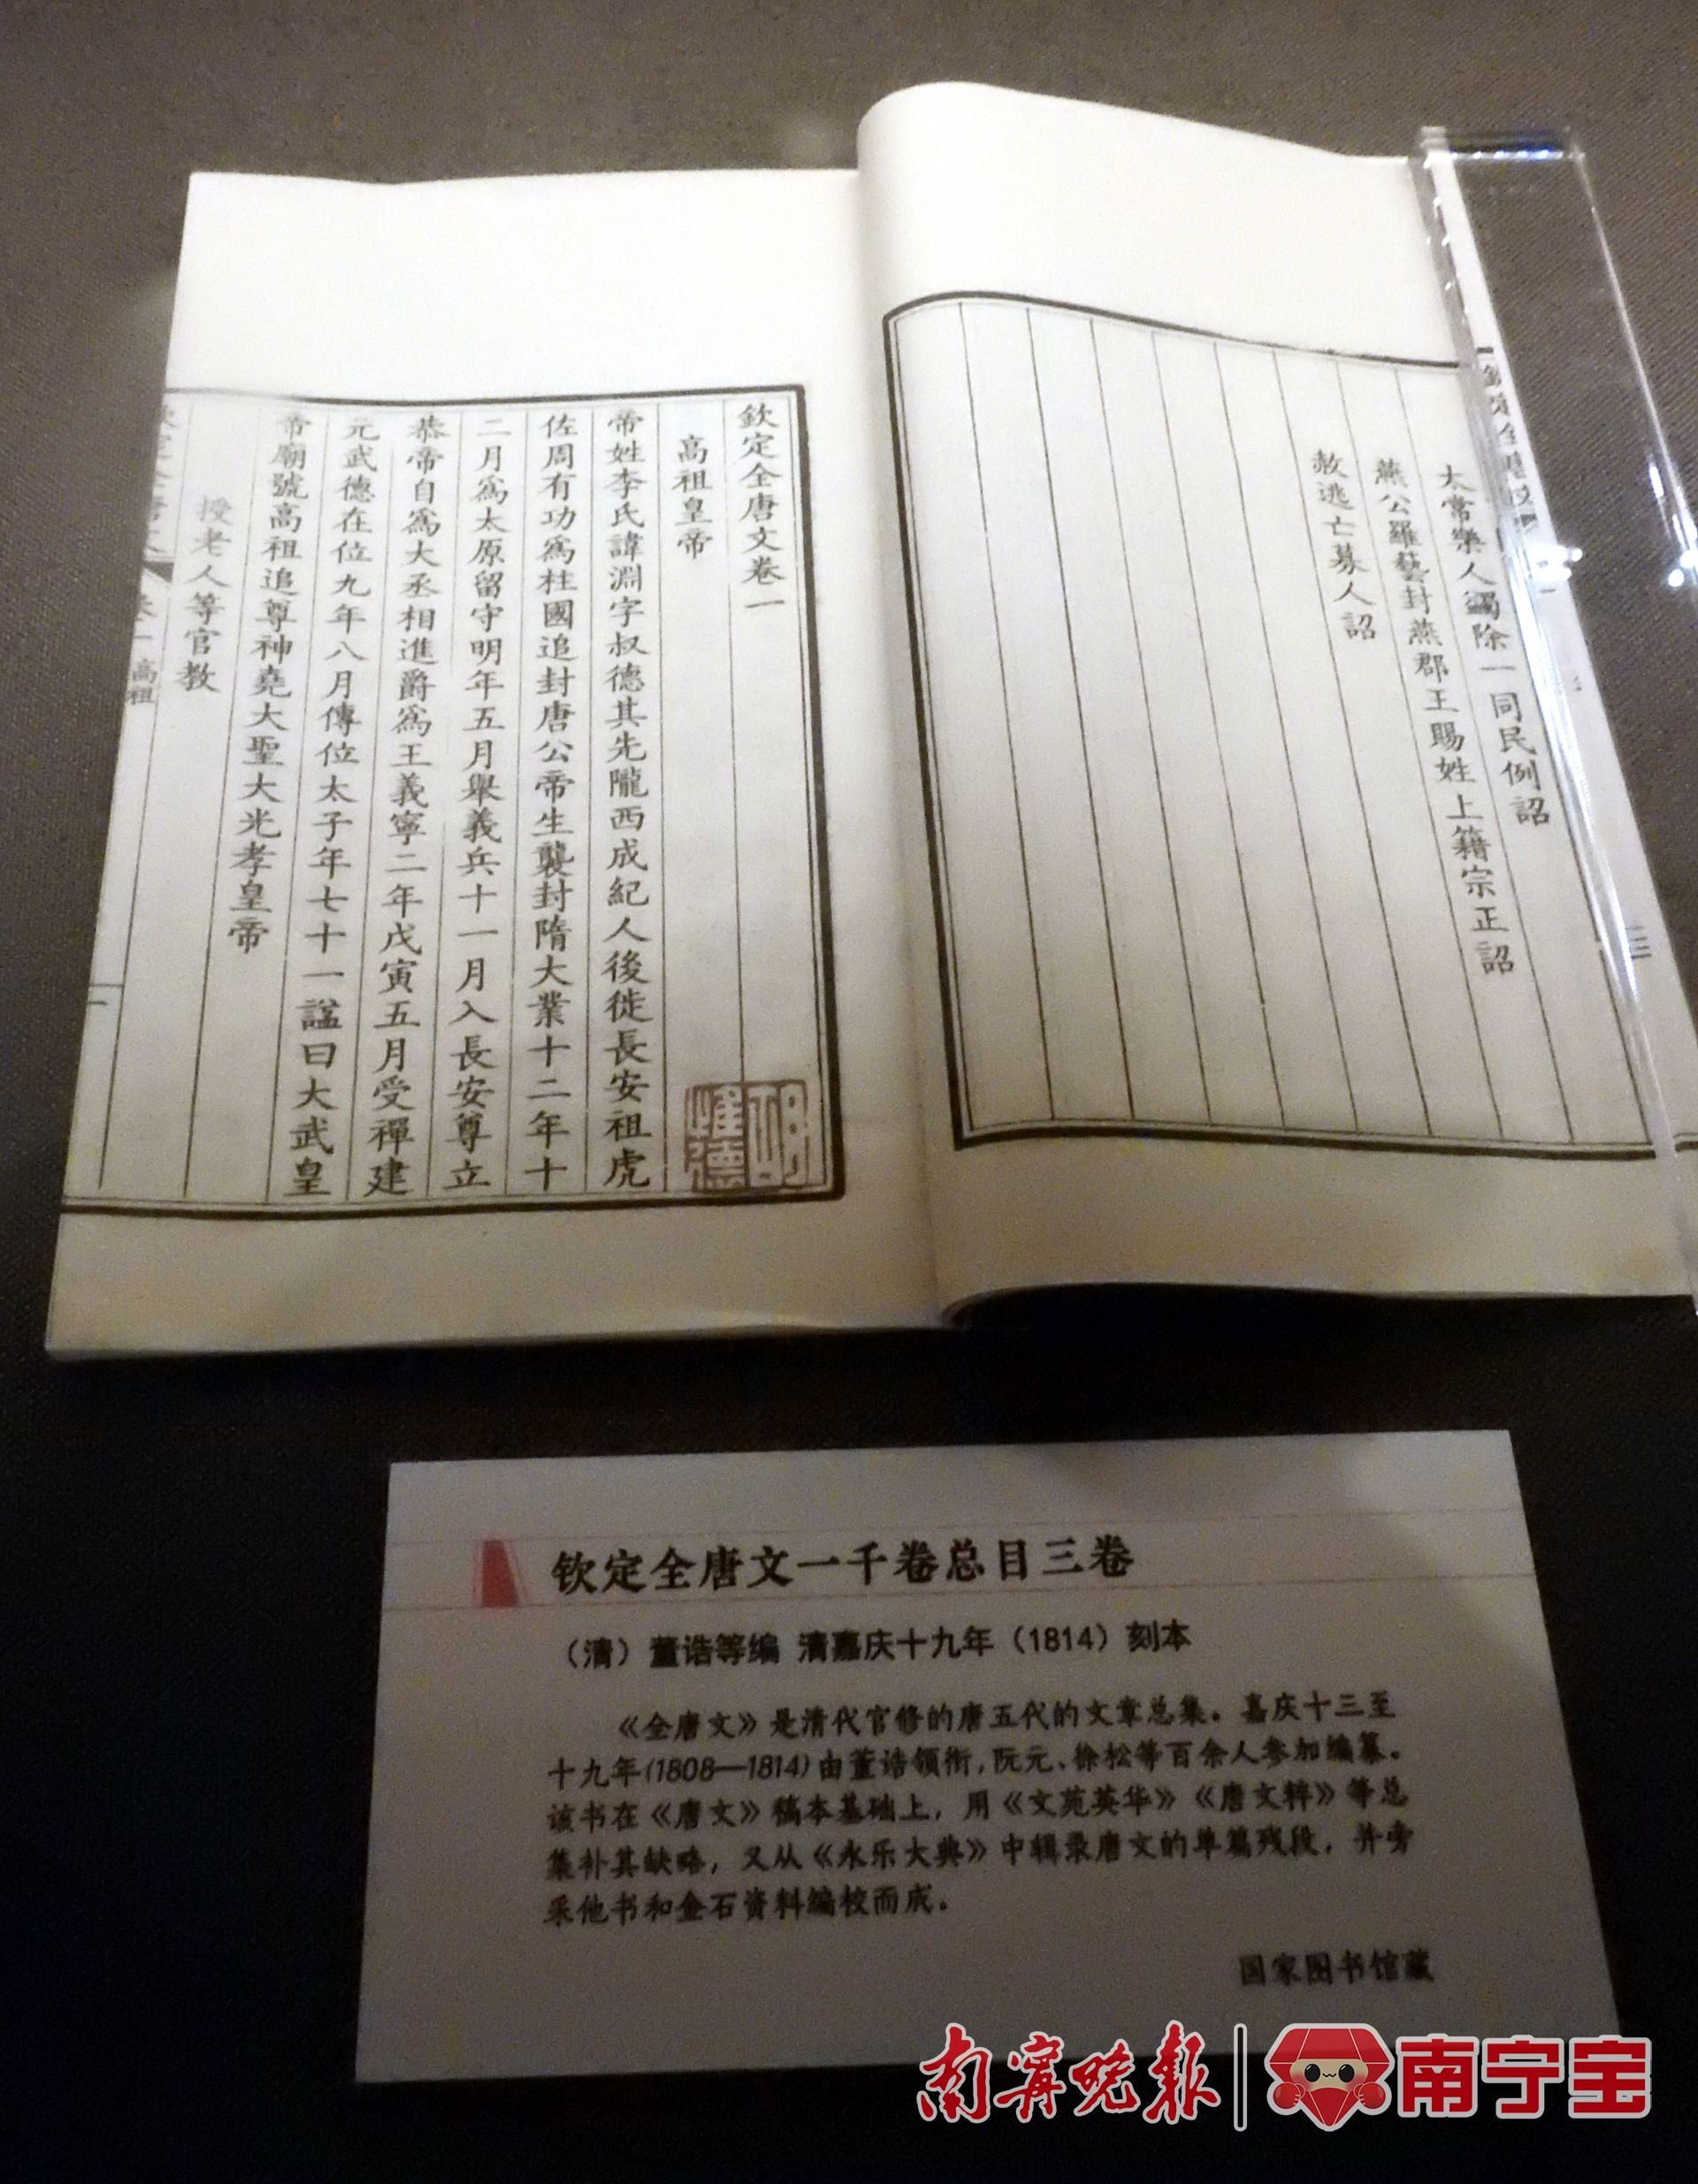 太常樂人蠲除一同民例詔
燕公羅藝封燕郡王賜姓上籍宗正詔
赦逃亡募人詔
欽定全唐文卷一
高祖皇帝
帝姓李氏諱淵字叔德其先隴西成紀人後徙長安祖虎
佐周有功為柱國追封唐公帝生襲封隋大業十二年十
二月為太原留守明年五月舉義兵十一月入長安尊立
恭帝自為大丞相進爵為王義寧二年戊寅五月受禪建
元武德在位九年八月傳位太子年七十一諡曰大武皇
帝廟號高祖追尊神堯大聖大光孝皇帝
授老人等官教
高祖
钦定全唐文一千卷总目三卷
（清）董诰等编 清嘉庆十九年（1814）刻本
《全唐文》是清代官修的唐五代的文章总集。嘉庆十三至
十九年(1808—1814)由董诰领衔,阮元、徐松等百余人参加编纂。
该书在《唐文》稿本基础上，用《文苑英华》《唐文粹》等总
集补其缺略，又从《永乐大典》中辑录唐文的单篇残段，并旁
采他书和金石资料编校而成。
国家图书馆藏
南宁晚报
南宁宝